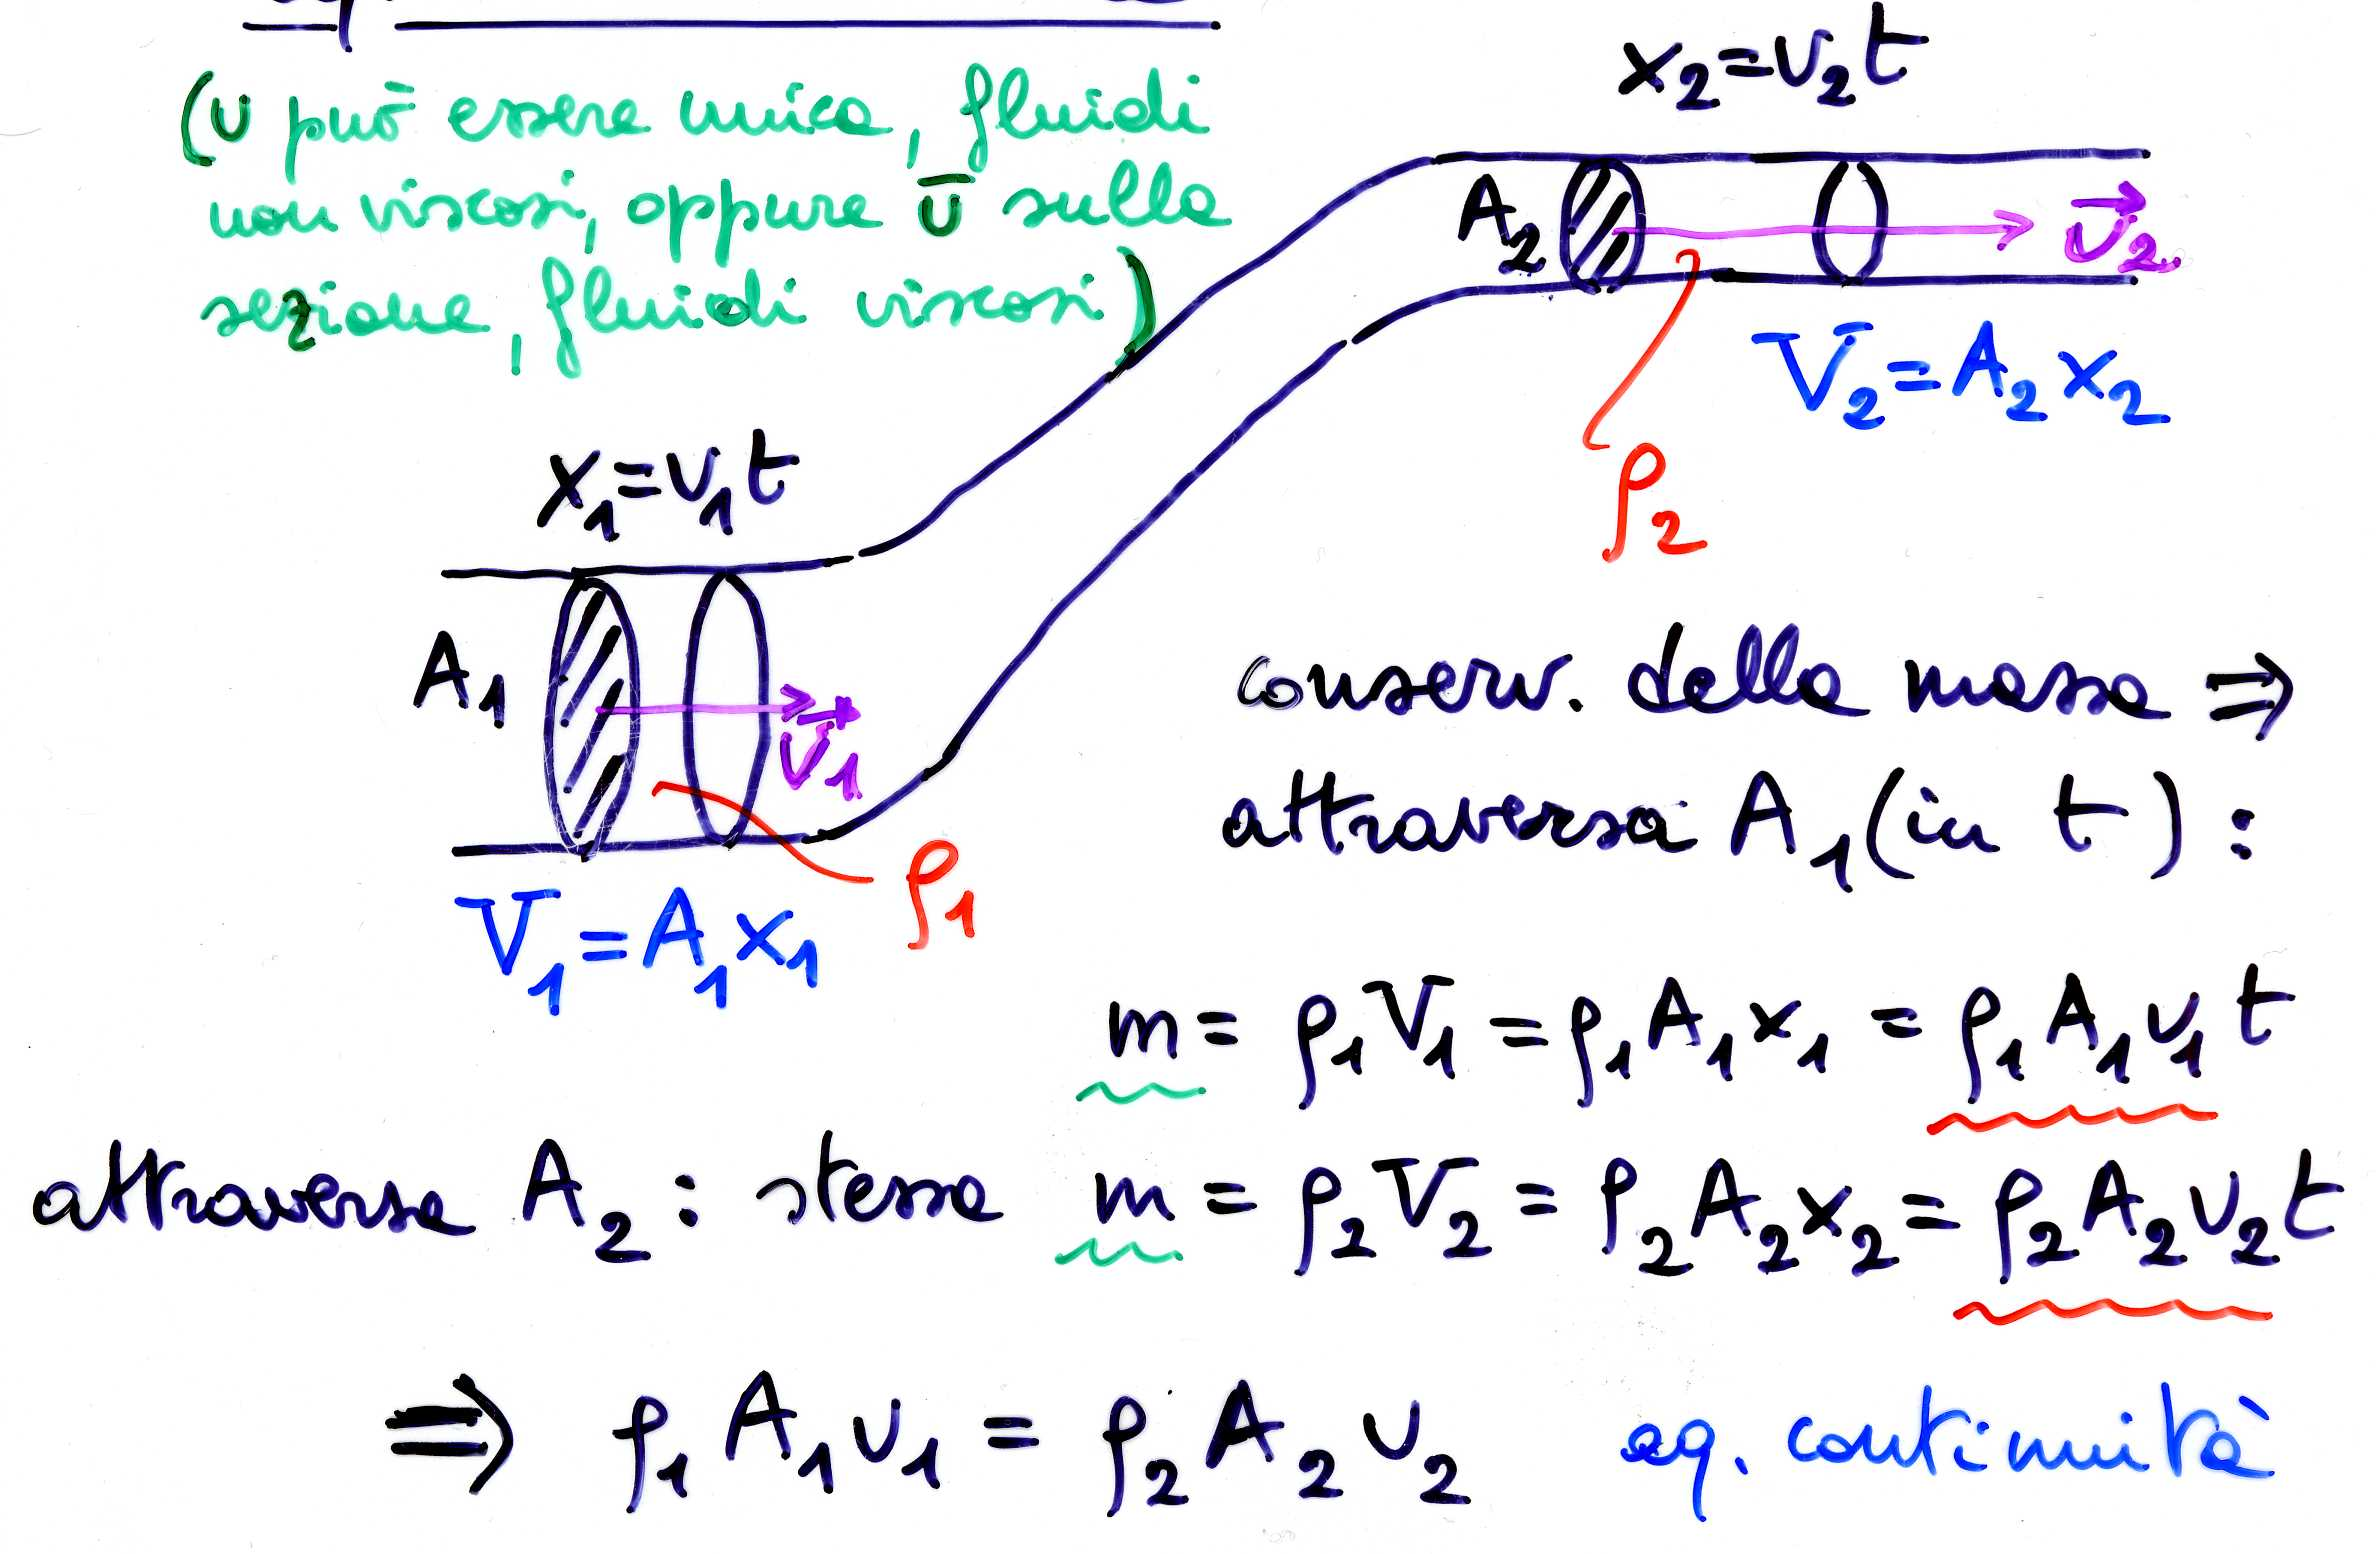 (v può essere unica, fluidi
non viscosi, oppure v̅ sulla
sezione, fluidi viscosi)
x₂=v₂t
A₂
v⃗₂
V₂=A₂x₂
ρ₂
x₁=v₁t
A₁
v⃗₁
ρ₁
V₁=A₁x₁
conserv. della massa ⇒
attraverso A₁(in t):
m= ρ₁V₁=ρ₁A₁x₁ = ρ₁A₁v₁t
attraverso A₂: stessa m = ρ₂V₂ = ρ₂A₂x₂= ρ₂A₂v₂t
⇒ ρ₁A₁v₁ = ρ₂A₂v₂ eq. continuità